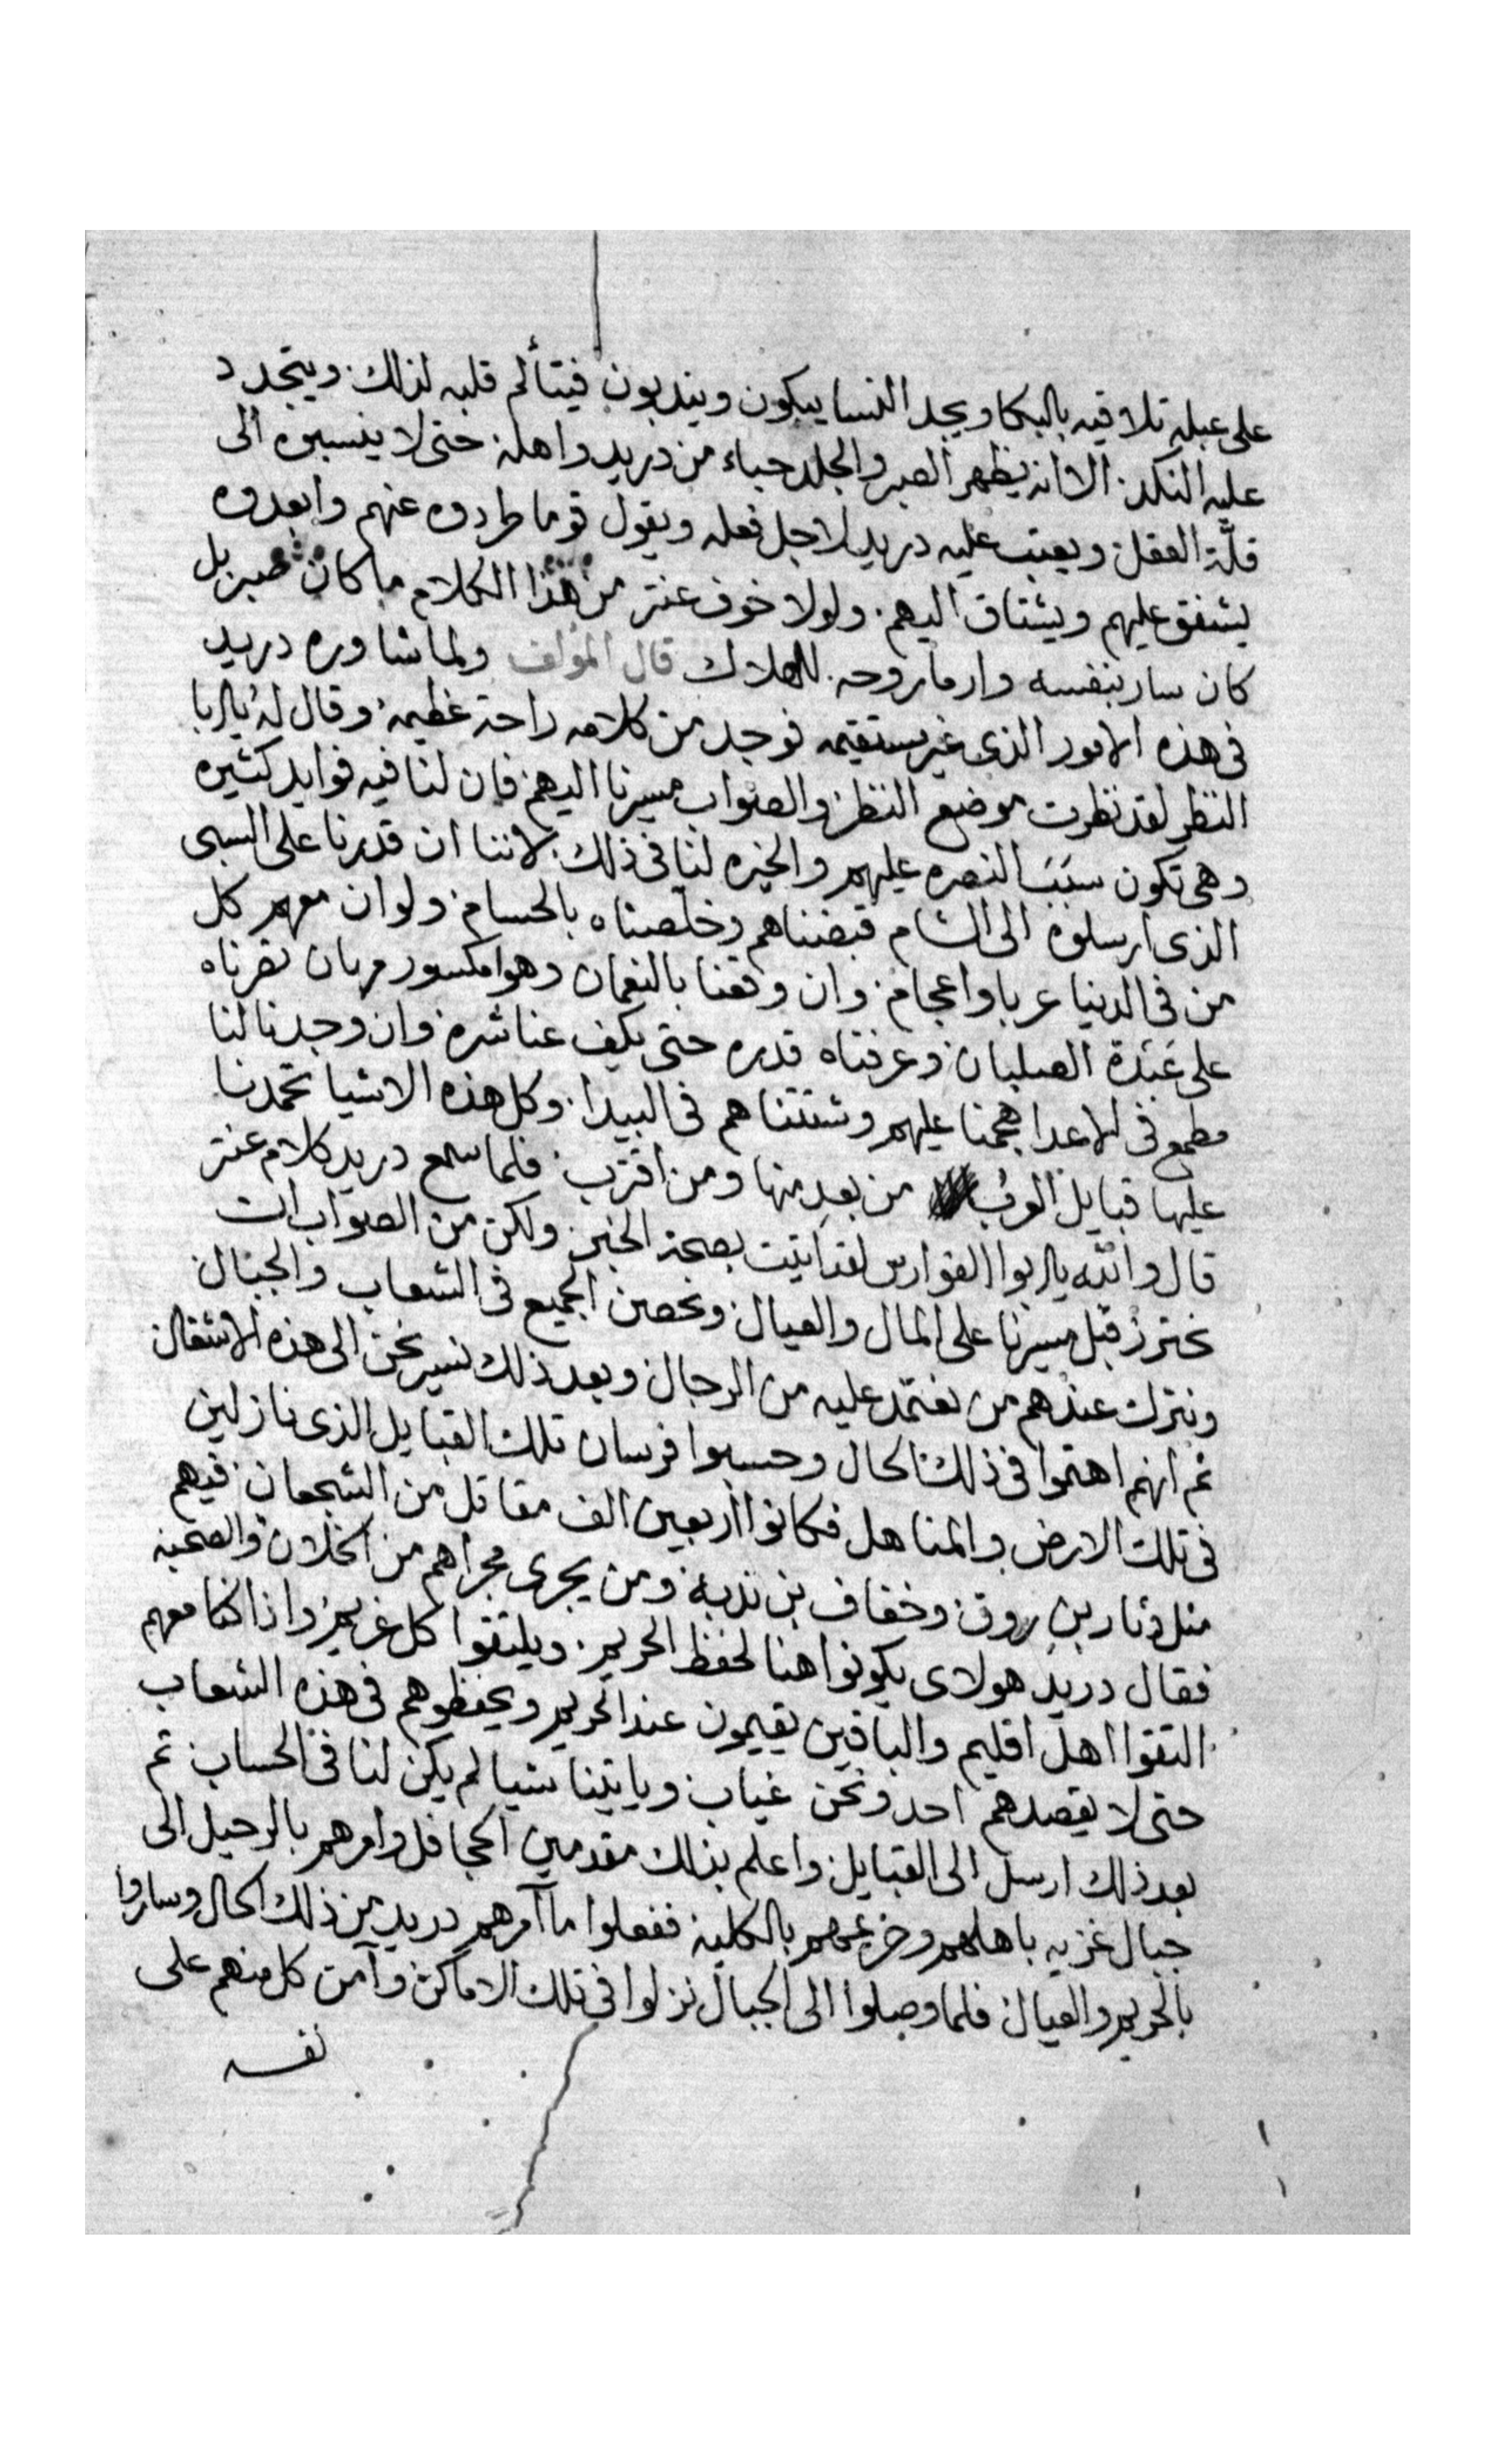 على عبله تلاقيه بالبكا ويجد النسا يبكون ويندبون فيتألم قلبه لذلك ويتجدد
عليه النكد الا انه يظهر الصبر والجلد حياء من دريد واهله حتى لا ينسبوه الى
قلّة العقل ويعتب عليه دريد لاجل فعله ويقول قوما طردوه عنهم وابعدوه
يشفق عليهم ويشتاق اليهم ولولا خوف عنتر من هذا الكلام ما كان صبر بل
كان سار بنفسه وارما روحه للهلاك قال المؤلف ولما شاوره دريد
فى هذه الامور الذى غير مستقيمه فوجد من كلامه راحة عظيمه وقال له يا ابا
النظر لقد نظرت موضع النظر والصواب مسيرنا اليهم فان لنا فيه فوايد كثيره
وهى تكون سبَبَ النصره عليهم والخيره لنا فى ذلك لاننا ان قدرنا على السبى
الذى ارسلوه الى الشام قبضناهم وخلّصناه بالحسام ولو ان معهم كل
من فى الدنيا عربا واعجام وان وقعنا بالنعمان وهوا مكسور مهان نصرناه
على عَبَدة الصلبان وعرفناه قدره حتى يكف عنا شره وان وجدنا لنا
مطمع فى الاعدا هجمنا عليهم وشتتناهم فى البيدا وكل هذه الاشيا تحمدنا
عليها قبايل العرب من بعد منها ومن اقترب فلما سمع دريد كلام عنتر
قال والله يا ابوا الفوارس لقد اتيت بصحة الخبر ولكن من الصواب ان
نحترز قبل مسيرنا على المال والعيال ونحصن الجميع فى الشعاب والجبال
ونترك عندهم من نعتمد عليه من الرجال وبعد ذلك نسير نحن الى هذه الاشغال
ثم انهم اهتموا فى ذلك الحال وحسبوا فرسان تلك القبايل الذى نازلين
فى تلك الارض والمناهل فكانوا اربعين الف مقاتل من الشجعان فيهم
مثل دثار بن روق وخفاف بن ندبة ومن يجرى مجراهم من الخلان والصحبه
فقال دريد هولاى يكونوا هنا لحفظ الحريم ويلتقوا كل غريم واذا كنا معهم
التقوا اهل اقليم والباقين يقيمون عند الحريم ويحفظوهم فى هذه الشعاب
حتى لا يقصدهم احد ونحن غياب وياتينا شيا لم يكن لنا فى الحساب ثم
بعد ذلك ارسل الى القبايل واعلم بذلك مقدمين الجحافل وامرهم بالرحيل الى
جبال غزيه باهلهم وحريمهم بالكلية ففعلوا ما آمرهم دريد من ذلك الحال وساروا
بالحريم والعيال فلما وصلوا الى الجبال نزلوا فى تلك الاماكن وآمن كل منهم على
نفسه